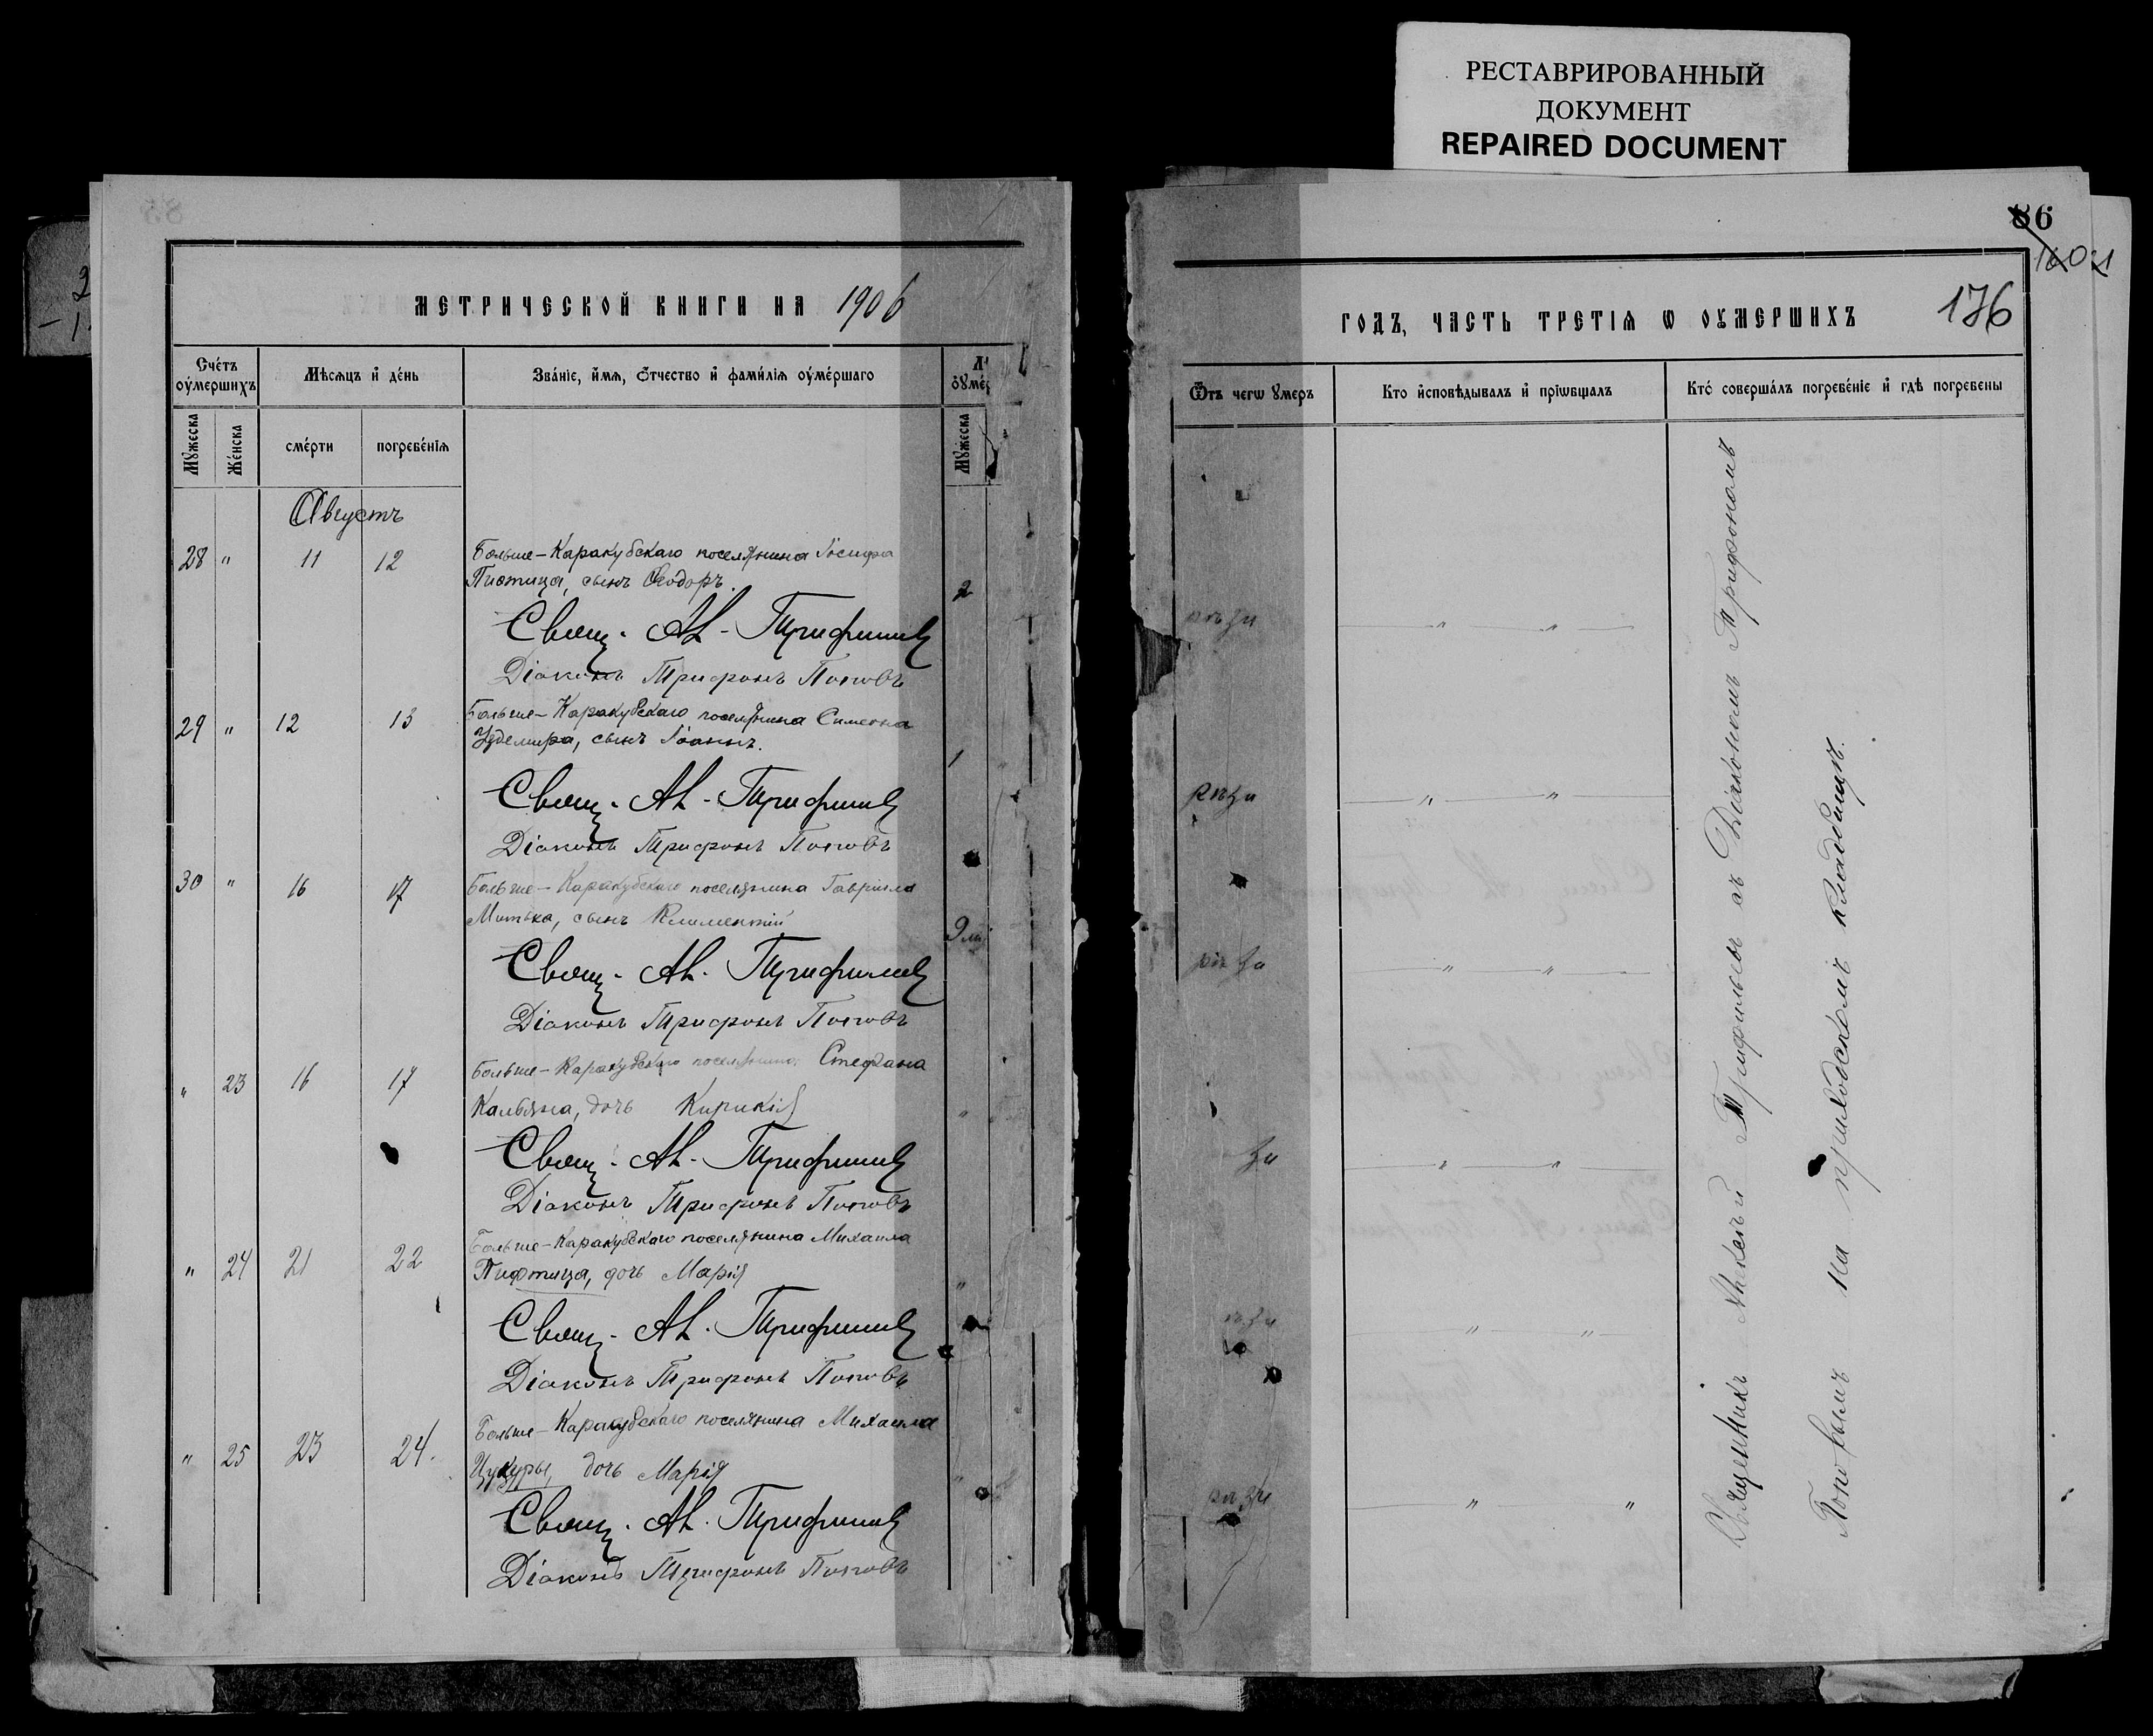 РЕСТАВРИРОВАННЫЙ
ДОКУМЕНТ
REPAIRED DOCUMENT
МЕТРИЧЕСКОЙ КНИГИ НА 1906
Счéтъ оу҆мершихъ
Мѣсѧцъ и҆ де́нь
Зва́нїе, и҆́мѧ, ѻ҆́тчество и҆ фами́лїѧ оу҆ме́ршагѡ
Мꙋ́жеска
Же́нска
сме́рти
погребе́нїѧ
Мꙋ́жеска
Августъ
28 " 11 12 Больше-Каракубскаго поселянина Іосифа
Пиотица, сынъ Ѳеодоръ. 2
Свящ. Ал. Трифильевъ
Діаконъ Трифонъ Поповъ
29 " 12 13 Больше-Каракубскаго поселянина Симеона
Уздемира, сынъ Іоаннъ. 1
Свящ. Ал. Трифильевъ
Діаконъ Трифонъ Поповъ
30 " 16 17 Больше-Каракубскаго поселянина Гавриила
Митька, сынъ Климентій 9
Свящ. Ал. Трифильевъ
Діаконъ Трифонъ Поповъ
" 23 16 17 Больше-Каракубскаго поселянина Стефана
Кальяна, дочь Кирикія
Свящ. Ал. Трифильевъ
Діаконъ Трифонъ Поповъ
" 24 21 22 Больше-Каракубскаго поселянина Михаила
Пифтица, дочь Марія
Свящ. Ал. Трифильевъ
Діаконъ Трифонъ Поповъ
" 25 23 24. Больше-Каракубскаго поселянина Михаила
Цукуры, дочь Марія
Свящ. Ал. Трифильевъ
Діаконъ Трифонъ Поповъ
86
176
ГОДЪ, ЧАСТЬ ТРЕТІѦ Ѡ ОУМЕРШИХЪ
Ѿтъ чегѡ ꙋмеръ
Кто и҆сповѣдывалъ и҆ прїѡбщалъ
Кто́ совершáлъ погребе́нїе и҆ гдѣ̀ погребены
Священникъ Алексѣй Трифильевъ съ Діакономъ Трифономъ
Поповымъ на приходскомъ кладбищѣ.